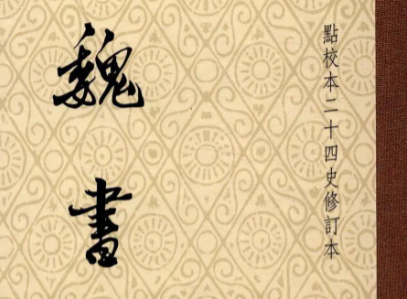 點校本二十四史修訂本
魏書